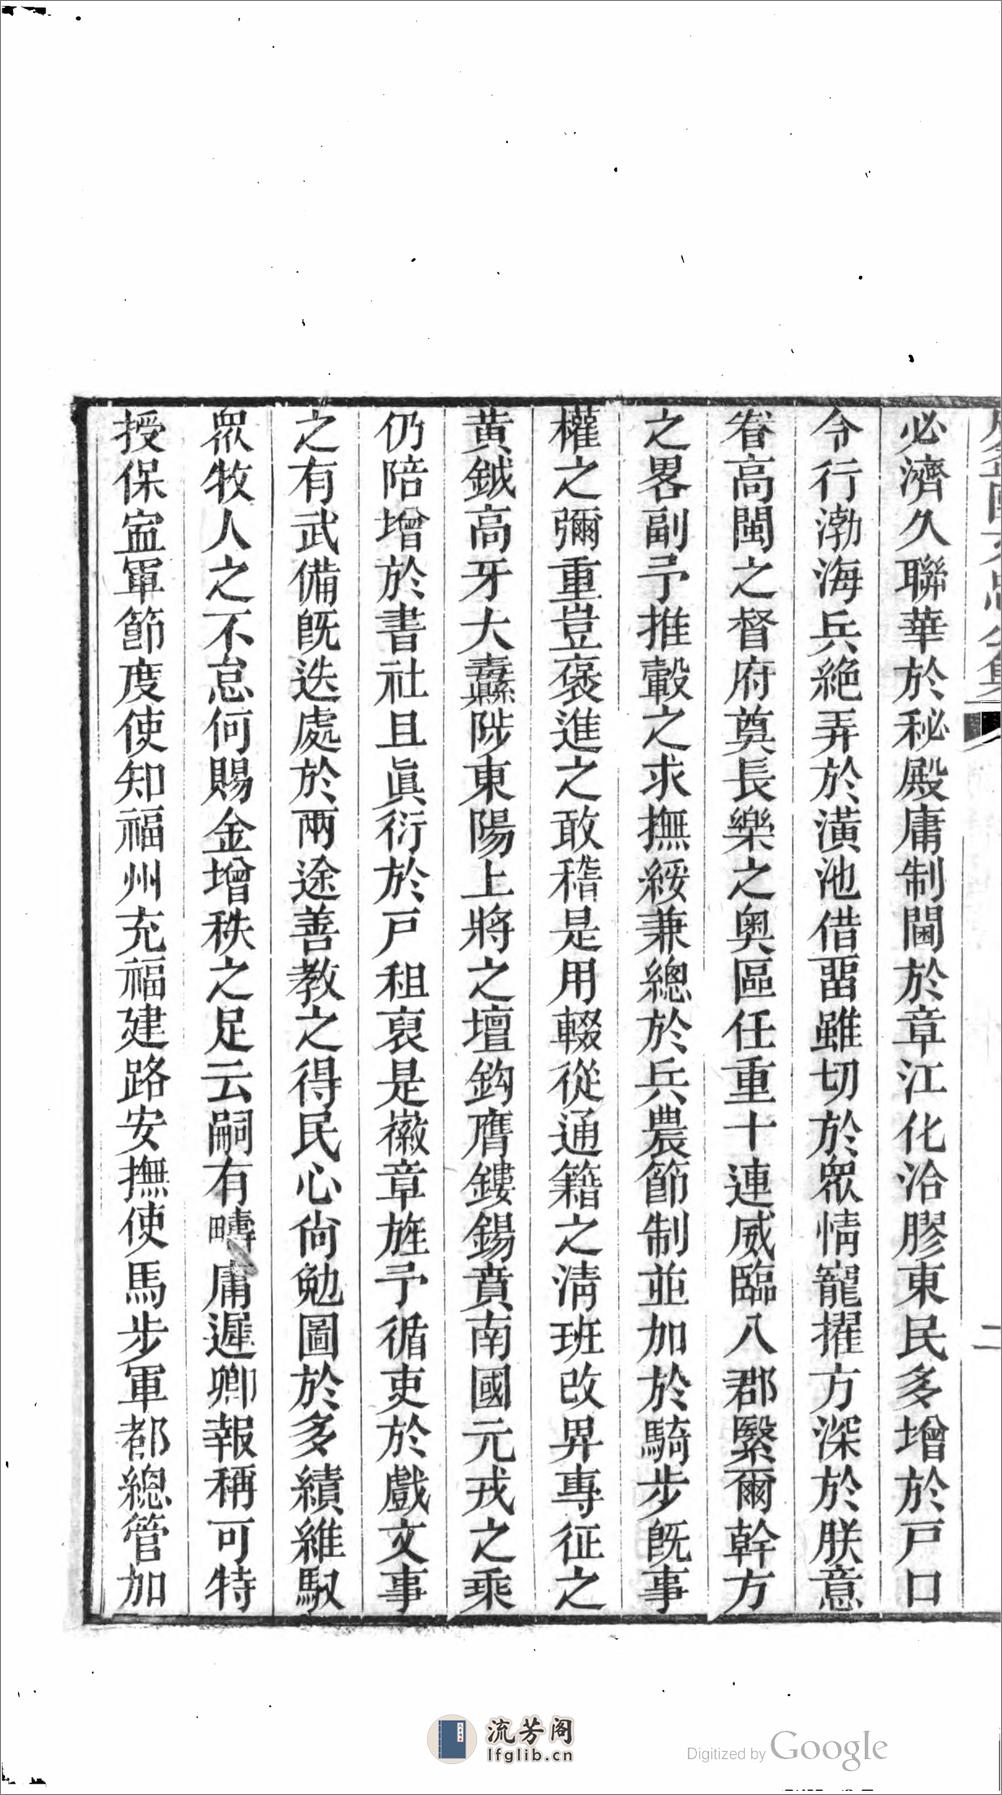 必濟久聯華於秘殿庸制閫於章江化洽膠東民多增於戸口
令行渤海兵絶弄於潢池借畱雖切於眾情寵擢方深於朕意
眷高閩之督府奠長樂之奥區任重十連威臨八郡繄爾幹方
之畧副予推轂之求撫綏兼總於兵農節制並加於騎步旣事
權之彌重豈褒進之敢稽是用輟從通籍之淸班改畀專征之
黄鉞高牙大纛陟東陽上將之壇鈎膺鏤鍚賁南國元戎之乘
仍陪增於書社且眞衍於戸租裒是徽章旌予循吏於戲文事
之有武備旣迭處於兩途善教之得民心尙勉圖於多績維馭
眾牧人之不怠何賜金增秩之足云嗣有疇庸遲卿報稱可特
授保寍軍節度使知福州充福建路安撫使馬步軍都總管加
二
流芳阁
lfglib.cn
Digitized by Google